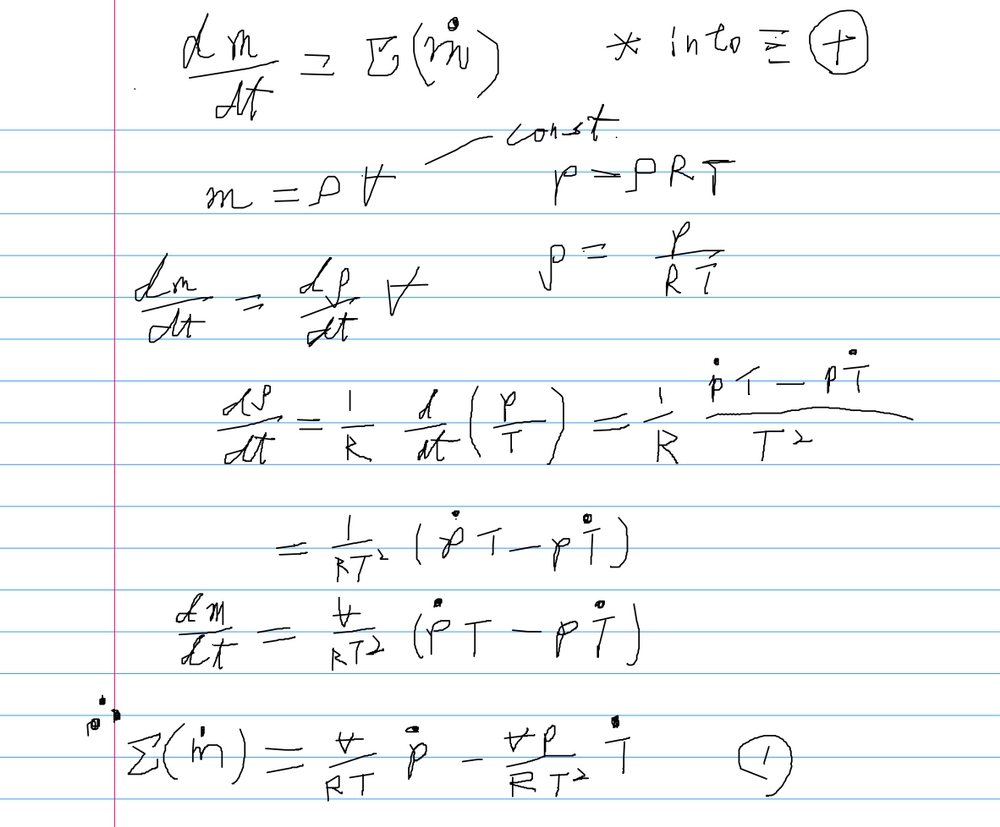 dm/dt = Σ(ṁ) * into ≡ ⊕
const.
m = ρ V̶ p = ρRT
ρ = p/RT
dm/dt = dρ/dt V̶
dρ/dt = 1/R d/dt (p/T) = 1/R (ṗT - pṪ)/T²
= 1/RT² (ṗT - pṪ)
dm/dt = V̶/RT² (ṗT - pṪ)
Σ(ṁ) = V̶/RT ṗ - V̶p/RT² Ṫ ①